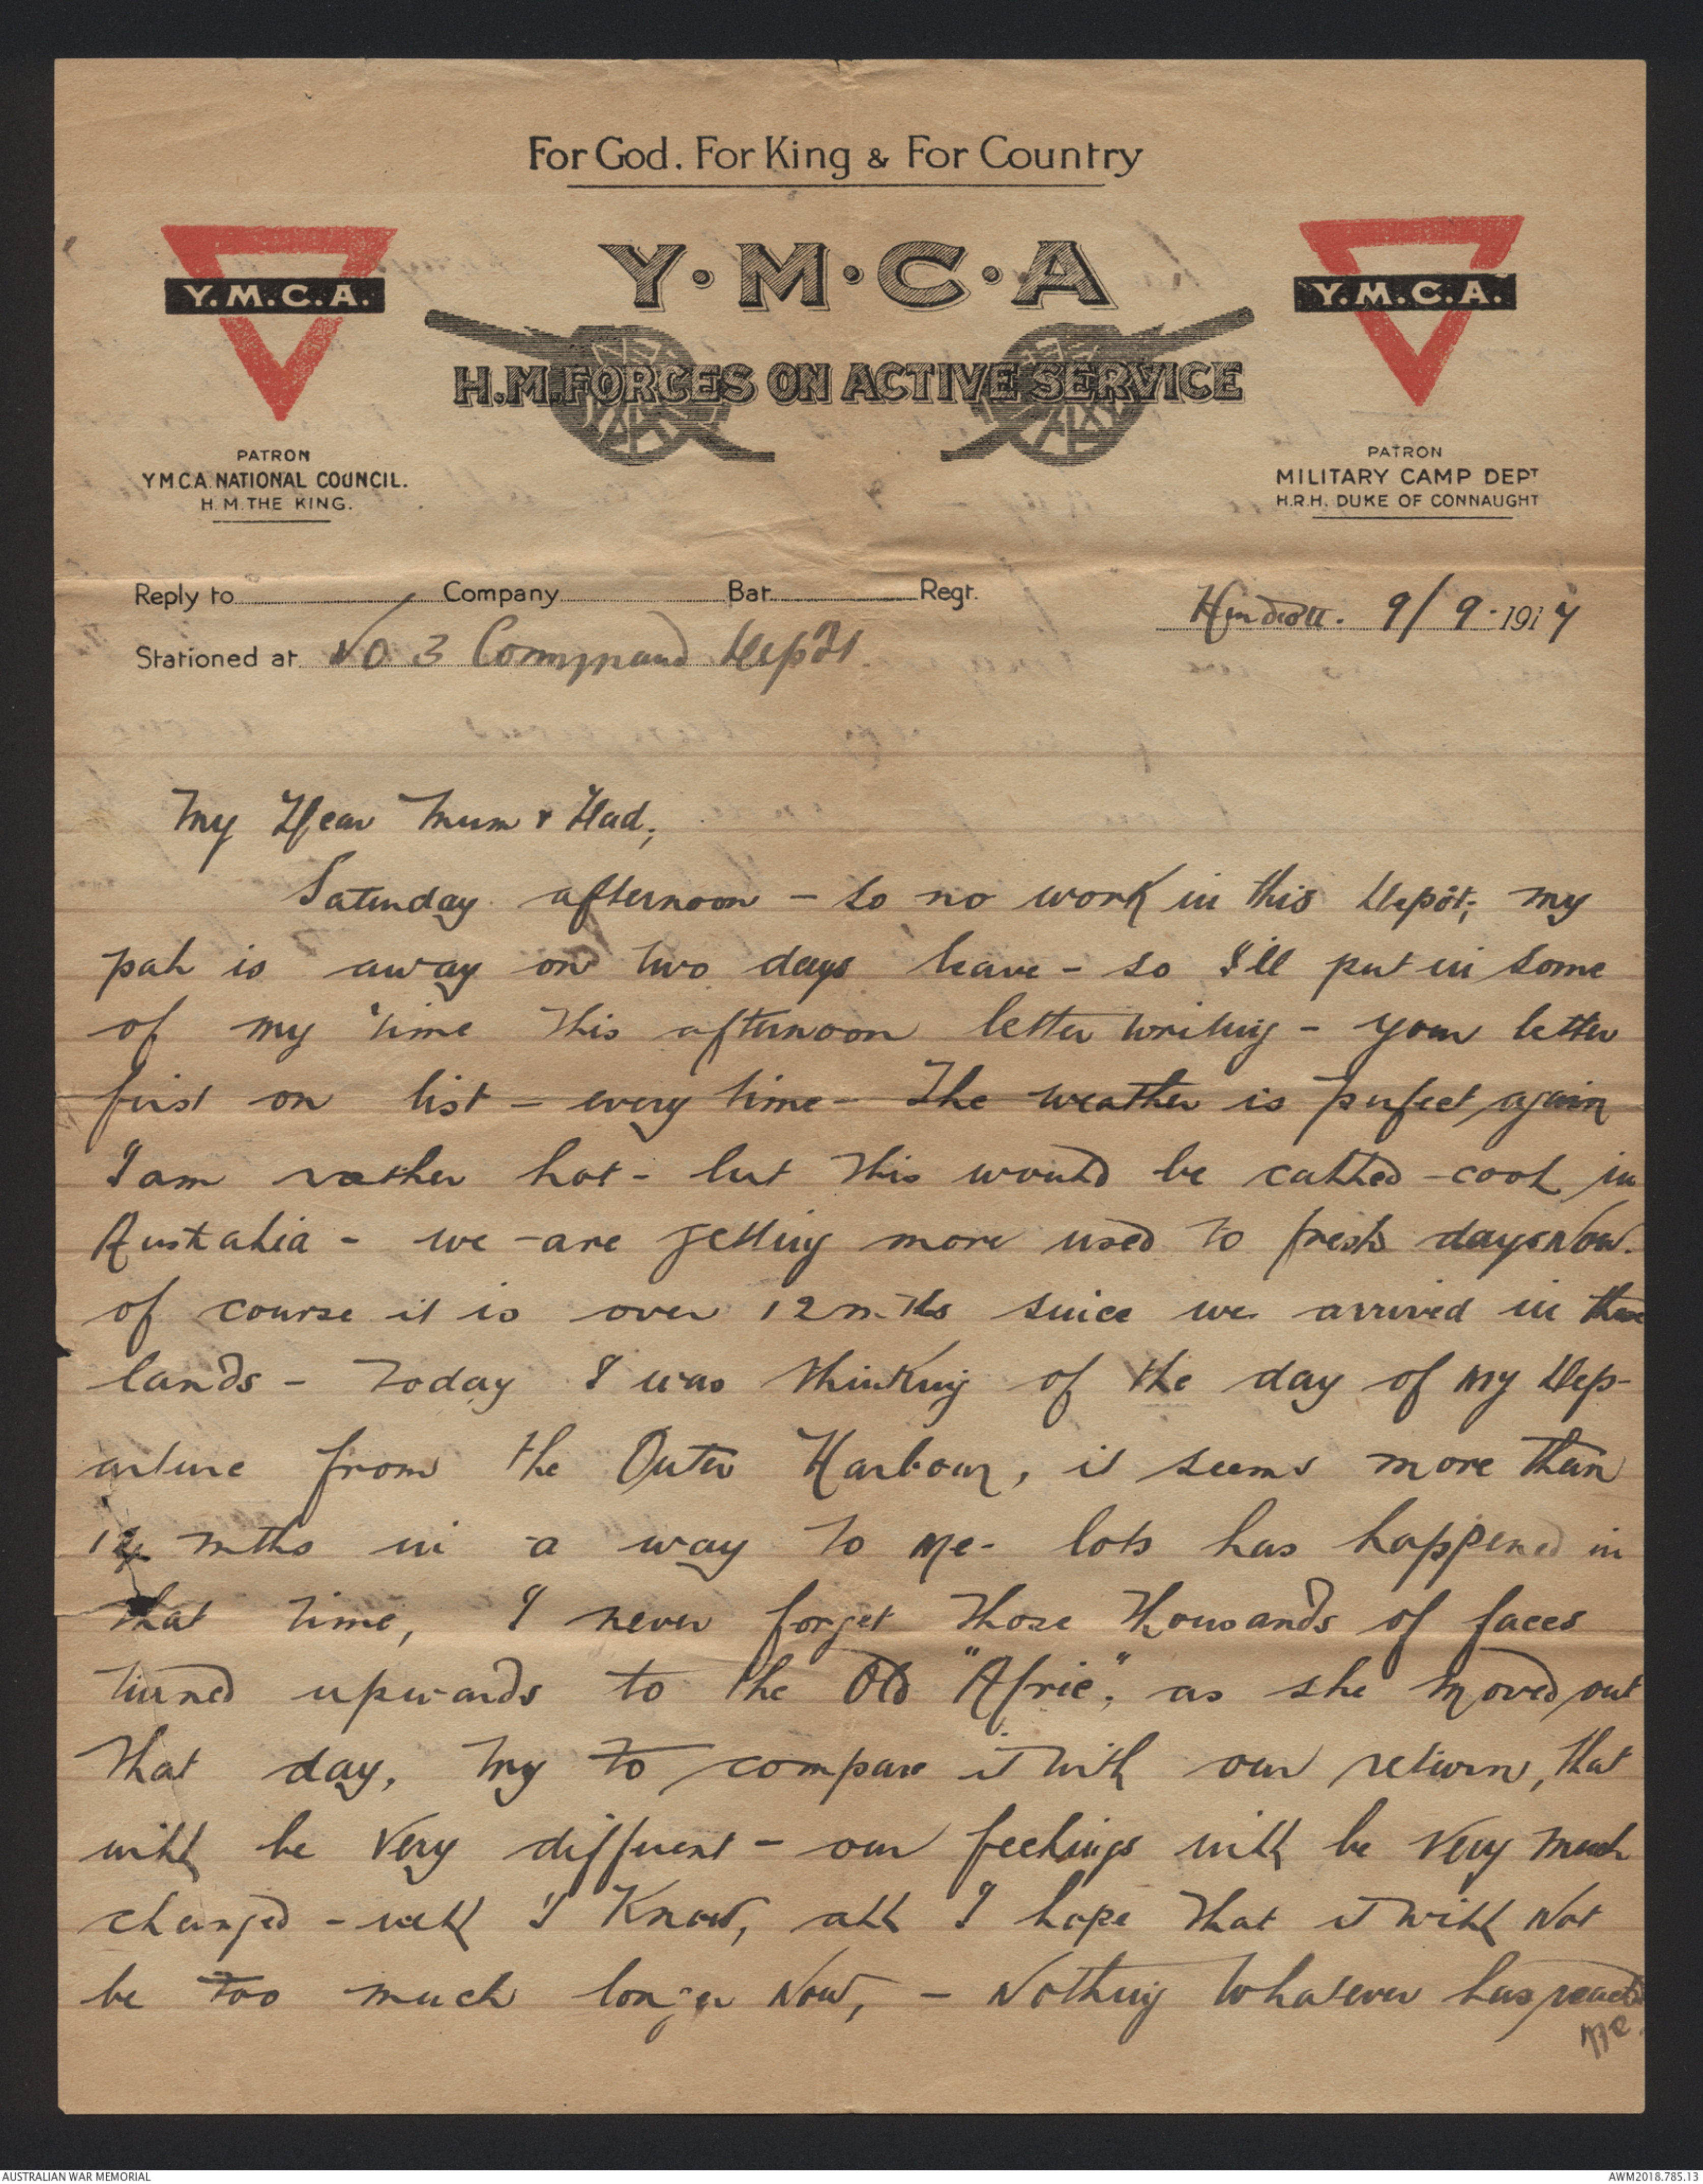 For God. For King & For Country
Y.M.C.A.
Y·M·C·A
Y.M.C.A.
H.M. FORCES ON ACTIVE SERVICE
PATRON
YMCA NATIONAL COUNCIL.
H.M. THE KING.
PATRON
MILITARY CAMP DEPT
H.R.H. DUKE OF CONNAUGHT
Reply to Company Bat. Regt.
Hurdcott. 9/9-1917
Stationed at No 3 Command Depôt.
My Dear Mum & Dad,
Saturday afternoon - so no work in this Depôt; my
pal is away on two days leave - so I'll put in some
of my time this afternoon letter writing - your letter
first on list - every time - The weather is perfect again
I am rather hot - but this would be called - cool in
Australia - we - are getting more used to fresh days Now.
of course it is over 12 mths since we arrived in these
lands - Today I was thinking of the day of my Dep-
arture from the Outer Harbour, it seems more than
12 mths in a way to me - lots has happened in
that time, I never forget those thousands of faces
turned upwards to the Old "Afric", as she moved out
that day, try to compare it with our return, that
will be very different - our feelings will be very much
changed - well I know, all I hope that it will not
be too much longer now, - Nothing whatever has reached
me.
AUSTRALIAN WAR MEMORIAL
AWM2018.785.13